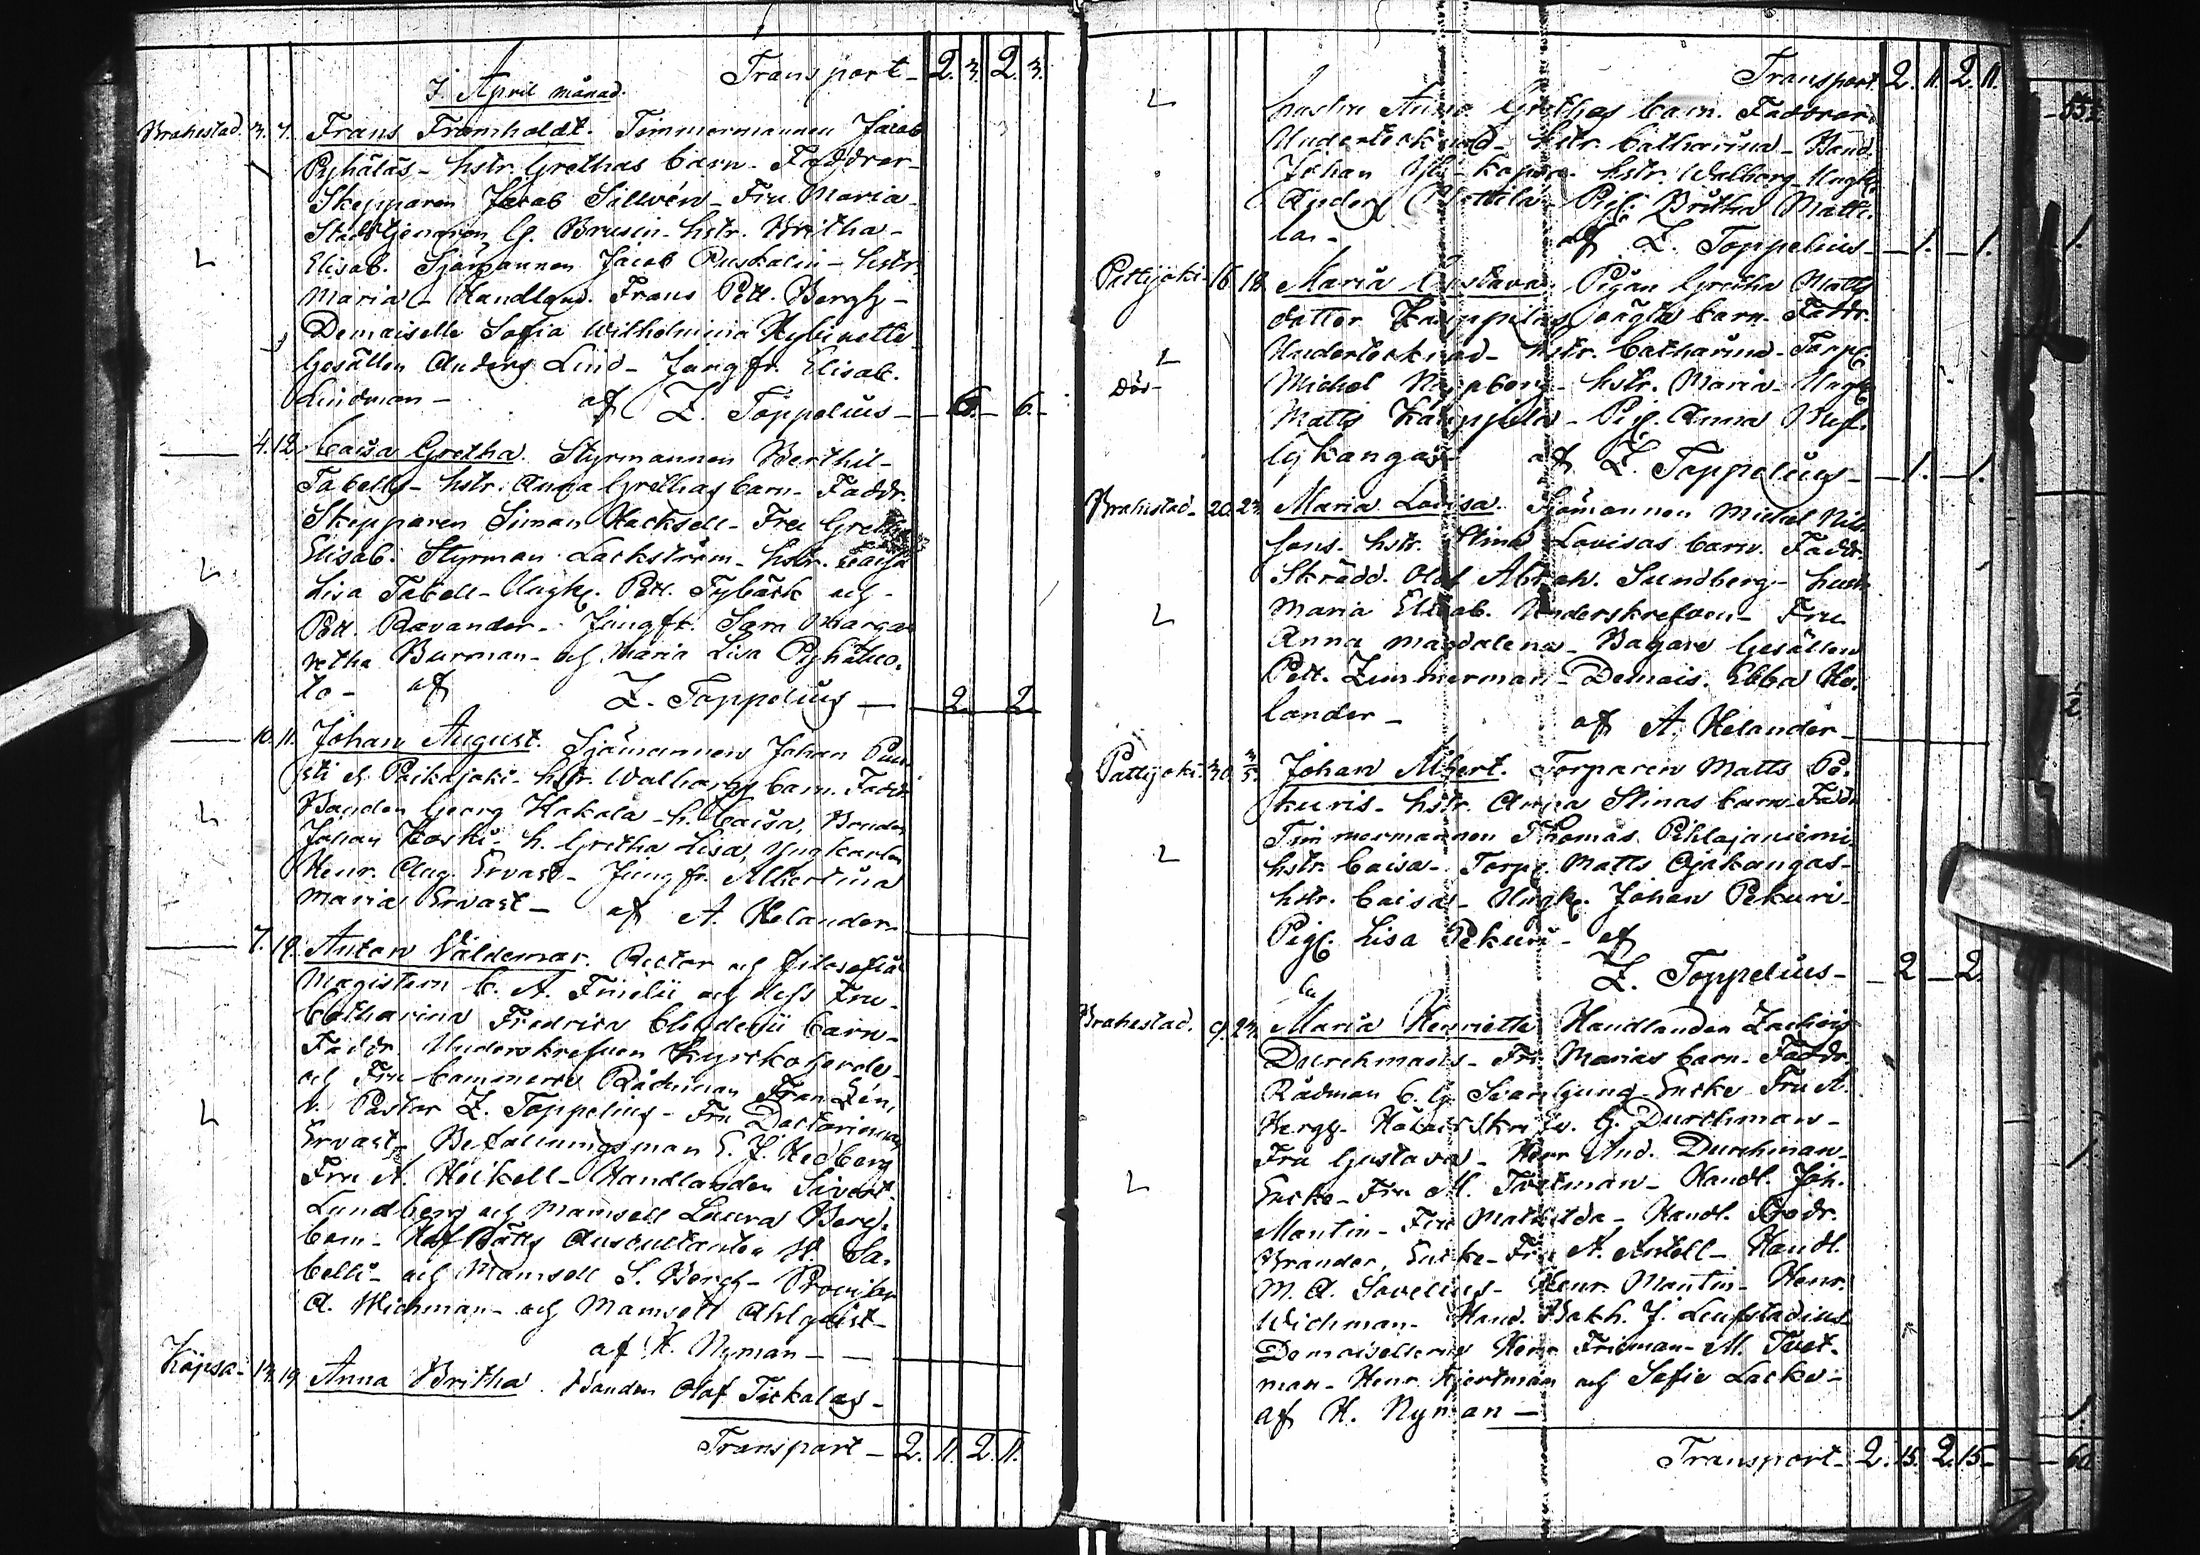 Transport - 2. 3. 2. 3.
I April månad.
Brahestad. 3. 7. Frans Fromholdt. Timmermannen Jacob
Pyhäläs - hstr. Grethas barn - Faddrar
Skepparen Jacob Sillwén - Fru Maria
G. Brusin - hstr. Britha -
Elisab. Sjömannen Jacob Ruskalin - hstr.
Maria - Handland. Frans Pett. Bergh -
Demoiselle Sofia Wilhelmina
Gesällen Anders Lind - Jungfr. Elisab.
Lindman - af Z. Toppelius - 6. - 6. -
4. 12. Caisa Gretha. Styrmannen Berthil
Tabells - hstr. Anna Grethas barn - Faddr.
Skepparen Simon Hacksell - Fru Gretha
Elisab. Styrman Lackström - hstr. Caisa
Lisa Tabell - Ungk. Pett. Sybäck och
Pett. Ravander - Jungfr. Sara Marga
retha Burman - och Maria Lisa
to - af Z. Toppelius - 2. 2.
10. 11. Johan August. Sjömannens Johan
Paikajoki - hstr. Walborgs barn. Faddr.
Bonden Georg Hakala - h. Caisa, Bonden
Johan Koski - h. Gretha Lisa, Ungkarlen
Henr. Aug. Ervast - Jungfr. Albertina
Maria Ervast - af A. Helander
7. 19. Anton Valdemar. Rector och filosofiæ
Magistern C. A. och dess Fru
Catharina Fredrica barn -
Faddr. Underskrefven Kyrkoherde
och Fru Rådman Franzén,
v. Pastor Z. Toppelius - Fru Doctorinnan
Ervast - Befallningsman E. J. Hedberg
Fru A. Heikell - Handlanden Sivert
Lundberg och Mamsell Laura Berg-
bom - HofRätts Auscultanten
och Mamsell S. Bergh - Provisor
A. Wichman - och Mamsell Ahlqvist -
af H. Nyman -
Köpsa - 13. 19. Anna Britha. Bonden Olof Tickalas -
Transport - 2. 11. 2. 11.
Transport 2. 11. 2. 11.
hustru Anna Grethas barn. Faddrar
Undertecknad - hstr. Catharina - Bond.
Johan - hstr. Walborg - Ungk.
Anders Mattila - Pig. Britha Matti-
la - af Z. Toppelius - 1. - 1.
Pattijoki - 16. 18. Maria Gustava. Pigan Gretha Matts
dotter Kauppilas oägta barn. Faddr.
Undertecknad - hstr. Catharina - Torp.
död - Michel - hstr. Maria - Ungk.
Matts Kauppila - Pig. Anna
kangas af Z. Toppelius - 1. - 1.
Brahestad - 20. 23. Maria Lovisa. Sjömannen Michel Nils
sons - hstr. Stina Lovisas barn. Faddr.
Skrädd. Olof Abrah. Sundberg - hustr.
Maria Elisab. Underskrefven - Fru
Anna Magdalena - Bagare Gesällen
Pett. Zimmerman - Demois. Ebba He-
lander - af A. Helander -
Pattijoki. 30. 3/5. Johan Albert. Torparen Matts Pe-
kuris - hstr. Anna Stinas barn - Faddr.
Timmermannen Thomas Pihlajaniemi
hstr. Caisa - Torp. Matts Ojakangas -
hstr. Caisa - Ungk. Johan Pekuri -
Pig. Lisa Pekuri - af
Z. Toppelius - 2. - 2.
Brahestad. 9. 23. Maria Henrietta Handlanden Zachris
Durchmans - Fru Marias barn - Faddr.
Rådman C. G. Svanljung - Encke Fru A.
Bergh. G. Durchman -
Fru Gustava - Herr And. Durchman -
Encke - Fru M. - Handl. Joh.
Montin - Fru Mathilda - Handl. Fredr.
Brander, Encke - Fru A. - Handl.
M. A. Sovelius - Henr. Montin - Henr.
Wichman - Hand. Bokh. J.
Demoisellerne Henr. Friman - M.
man - Henr. och Sofie Lacke -
af H. Nyman -
Transport - 2. 15. 2. 15.